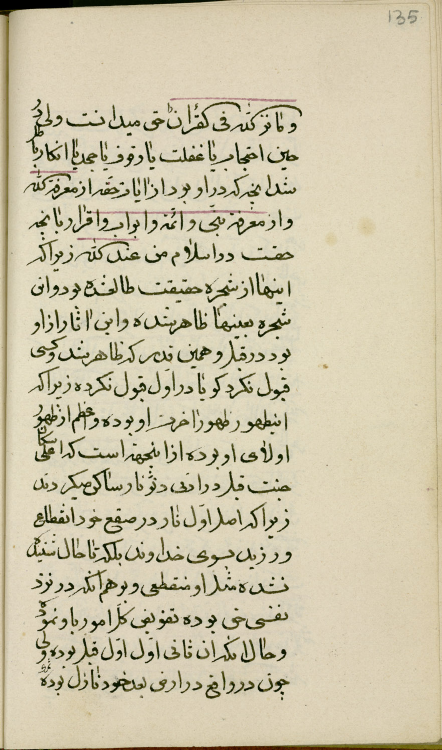 135
و ما نزل الله فی القرآن حق میدانست ولی در
حین احتجاب یا غفلت یا وقوف یا جحد یا انکار باطل
شد آنچه که در او بود از آیات حقه از معرفة الله
و از معرفة نبی و ائمه و ابواب و اقرار بما نجه
حقیت در اسلام من عند الله زیرا که
اینها از شجره حقیقت طالع شده بود و این
شجره بعینها ظاهر شده و این آثار از او
بود در قبل و همین قدر که ظاهر شد و کسی
قبول نکرد گویا در اول قبول نکرده زیرا که
این ظهور ظهور آخرت او بوده و اعظم از ظهور
اولای او بوده از این جهة است که اعلی سکان
جنت قبل در ادنی دنو نار ساکن میگردند
زیرا که اصل اول نار در صقع خود انقطاعی
ورزید بسوی خداوند بلکه تا حال شنیده
نشده مثل او منقطعی و بوهم آنکه در نزد
نفسی حق بوده تفویض کل امور باو نموده
و حال آنکه آن ثانی اول اول قبل بوده ولی
چون در واقع در ارض بعد خود نازل بوده